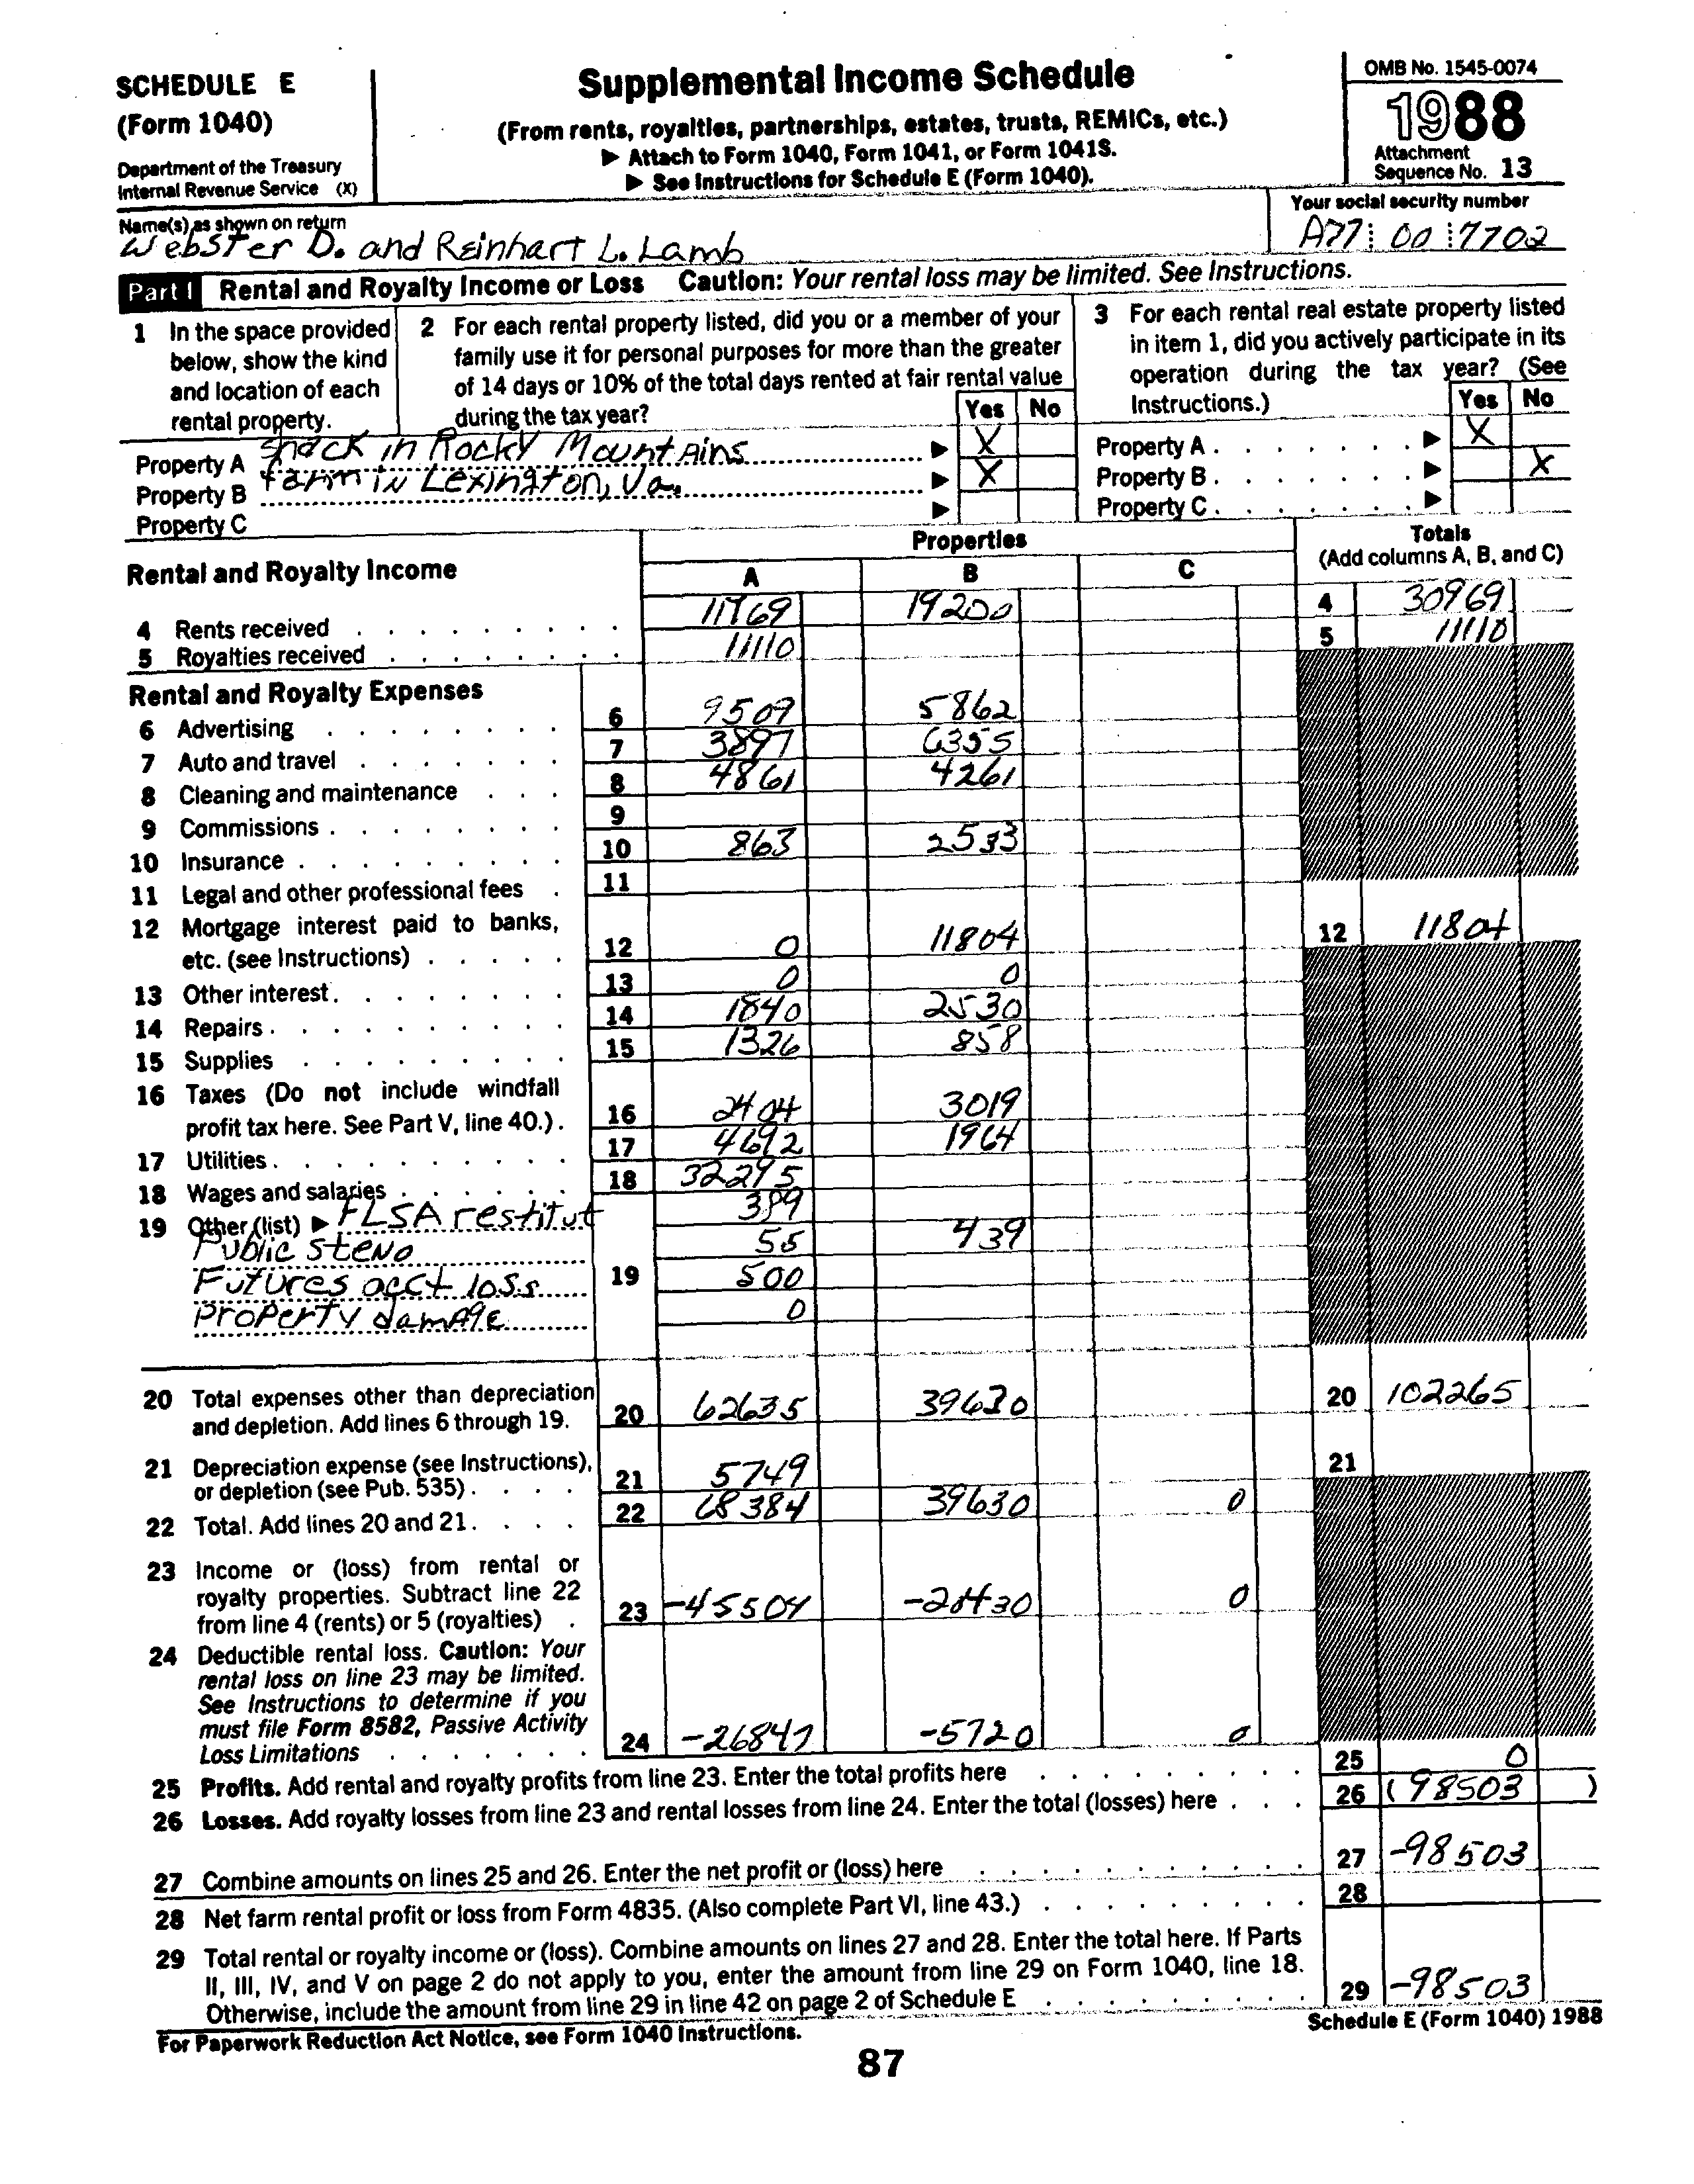 SCHEDULE E
(Form 1040)
Department of the Treasury
Internal Revenue Service (X)
Supplemental Income Schedule
(From rents, royalties, partnerships, estates, trusts, REMICs, etc.)
▶ Attach to Form 1040, Form 1041, or Form 1041S.
▶ See Instructions for Schedule E (Form 1040).
OMB No. 1545-0074
1988
Attachment
Sequence No. 13
Name(s) as shown on return
Webster D. and Reinhart L. Lamb
Your social security number
A77 00 7702
Part I Rental and Royalty Income or Loss Caution: Your rental loss may be limited. See Instructions.
1 In the space provided
below, show the kind
and location of each
rental property.
2 For each rental property listed, did you or a member of your
family use it for personal purposes for more than the greater
of 14 days or 10% of the total days rented at fair rental value
during the tax year?
Yes No
3 For each rental real estate property listed
in item 1, did you actively participate in its
operation during the tax year? (See
Instructions.)
Yes No
Property A Shack in Rocky Mountains ▶ X
Property B farm in Lexington, Va. ▶ X
Property C ▶
Property A ▶ X
Property B ▶ X
Property C ▶
Rental and Royalty Income
Properties
A B C
Totals
(Add columns A, B, and C)
4 Rents received 11769 19200 4 30969
5 Royalties received 11110 5 11110
Rental and Royalty Expenses
6 Advertising 6 9509 5862
7 Auto and travel 7 3897 6355
8 Cleaning and maintenance 8 4861 4261
9 Commissions 9
10 Insurance 10 863 2533
11 Legal and other professional fees 11
12 Mortgage interest paid to banks,
etc. (see Instructions) 12 0 11804 12 11804
13 Other interest 13 0 0
14 Repairs 14 1840 2530
15 Supplies 15 1326 858
16 Taxes (Do not include windfall
profit tax here. See Part V, line 40.) 16 2404 3019
17 Utilities 17 4692 1964
18 Wages and salaries 18 32295
19 Other (list) ▶ FLSA restitut 389
Public steno 55 439
Futures acct loss 19 500
Property damage 0
20 Total expenses other than depreciation
and depletion. Add lines 6 through 19. 20 62635 39630 20 102265
21 Depreciation expense (see Instructions),
or depletion (see Pub. 535) 21 5749 21
22 Total. Add lines 20 and 21 22 68384 39630 0
23 Income or (loss) from rental or
royalty properties. Subtract line 22
from line 4 (rents) or 5 (royalties) 23 -45504 -20430 0
24 Deductible rental loss. Caution: Your
rental loss on line 23 may be limited.
See Instructions to determine if you
must file Form 8582, Passive Activity
Loss Limitations 24 -26847 -5720 0
25 Profits. Add rental and royalty profits from line 23. Enter the total profits here 25 0
26 Losses. Add royalty losses from line 23 and rental losses from line 24. Enter the total (losses) here 26 (98503)
27 Combine amounts on lines 25 and 26. Enter the net profit or (loss) here 27 -98503
28 Net farm rental profit or loss from Form 4835. (Also complete Part VI, line 43.) 28
29 Total rental or royalty income or (loss). Combine amounts on lines 27 and 28. Enter the total here. If Parts
II, III, IV, and V on page 2 do not apply to you, enter the amount from line 29 on Form 1040, line 18.
Otherwise, include the amount from line 29 in line 42 on page 2 of Schedule E 29 -98503
For Paperwork Reduction Act Notice, see Form 1040 Instructions.
Schedule E (Form 1040) 1988
87